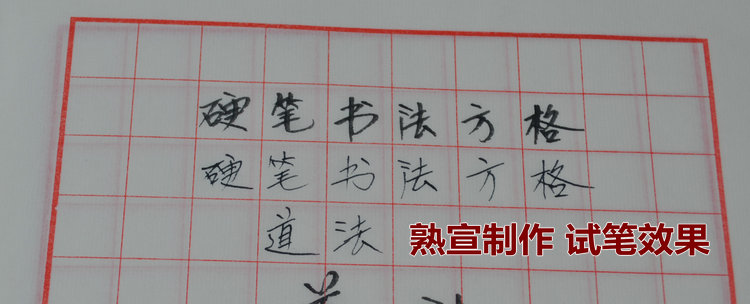 硬笔书法方格
硬笔书法方格
道法
熟宣制作 试笔效果